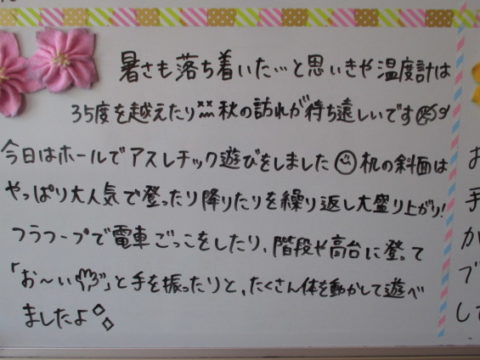 暑さも落ち着いた…と思いきや温度計は
35度を越えたり 秋の訪れが待ち遠しいです
今日はホールでアスレチック遊びをしました 机の斜面は
やっぱり大人気で登ったり降りたりを繰り返し大盛り上がり!
フラフープで電車ごっこをしたり、階段や高台に登って
「お〜い」と手を振ったりと、たくさん体を動かして遊べ
ましたよ
お
手
か
ブ
して